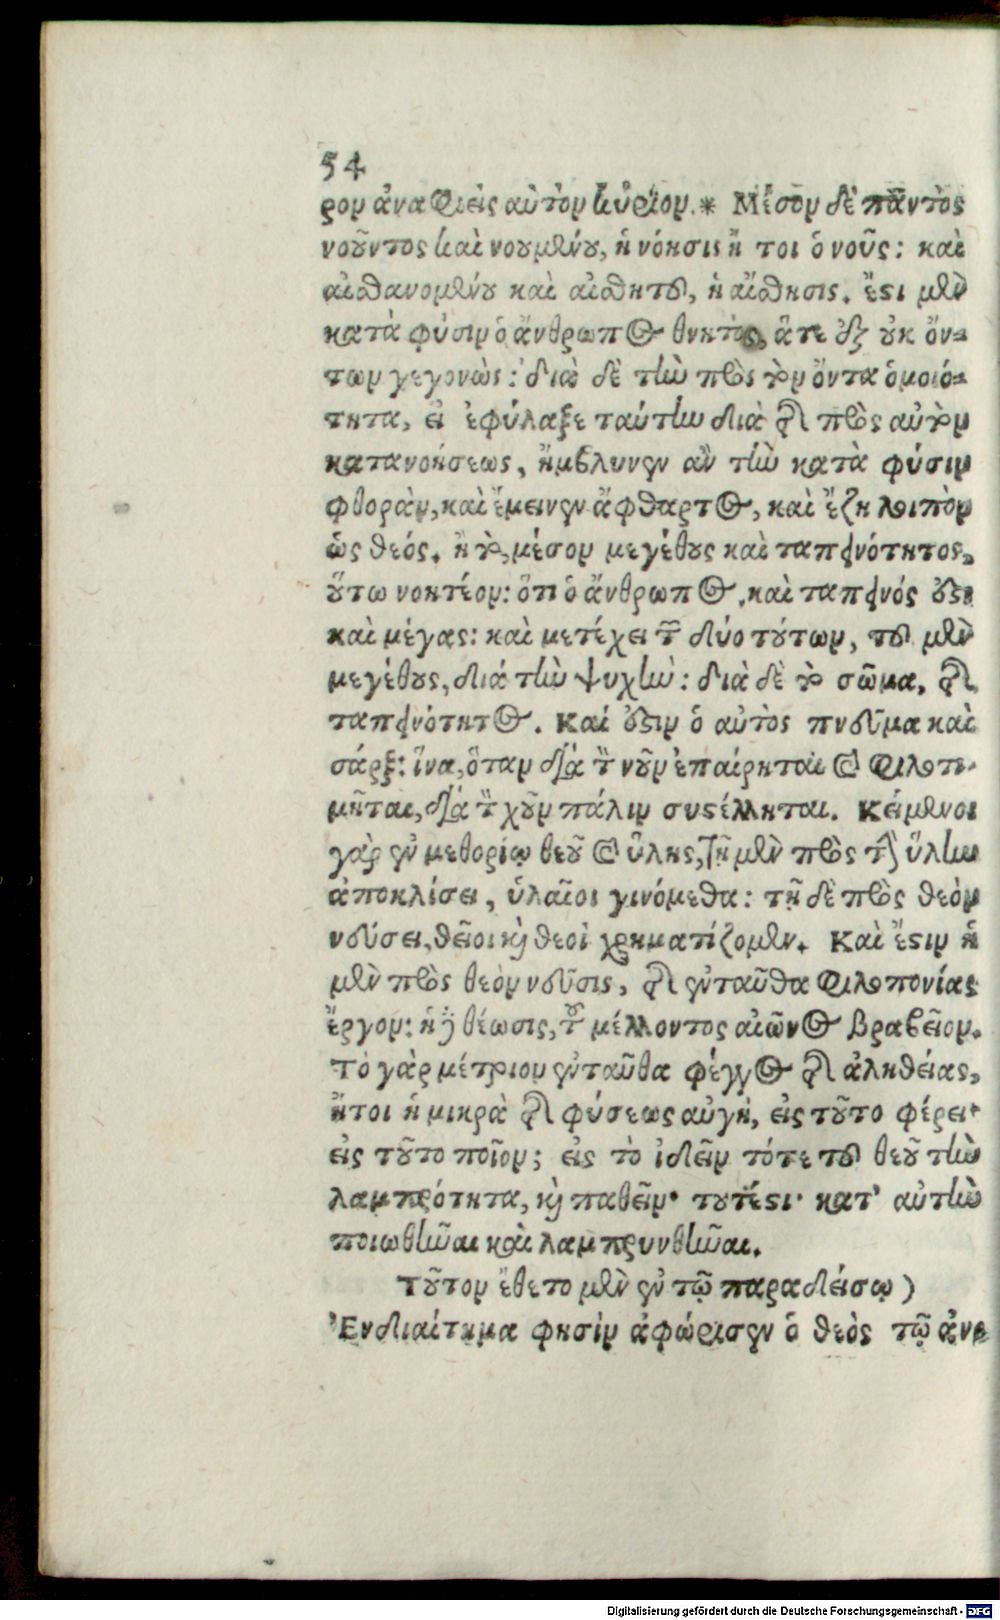 54
ρον ἀναφιεὶς αὐτὸν κύριον.* Μέσον δὲ παντὸς
νοῦντος καὶ νουμένου, ἡ νόησις ἤ τοι ὁ νοῦς: καὶ
αἰσθανομένου καὶ αἰσθητοῦ, ἡ αἴσθησις. ἔστι μὲν
κατὰ φύσιν ὁ ἄνθρωπος θνητὸς, ἅτε ἐξ οὐκ ὄν-
των γεγονὼς: διὰ δὲ τὴν πρὸς τὸν ὄντα ὁμοιό-
τητα, εἰ ἐφύλαξε ταύτην διὰ τῆς πρὸς αὐτὸν
κατανοήσεως, ἤμβλυνεν ἂν τὴν κατὰ φύσιν
φθορὰν, καὶ ἔμεινεν ἄφθαρτος, καὶ ἔζη λοιπὸν
ὡς θεός. ἢ τὸ, μέσον μεγέθους καὶ ταπεινότητος,
οὕτω νοητέον: ὅτι ὁ ἄνθρωπος, καὶ ταπεινός ἐστι
καὶ μέγας: καὶ μετέχει τῶν δύο τούτων, τοῦ μὲν
μεγέθους, διά τὴν ψυχὴν: διὰ δὲ τὸ σῶμα, τῆς
ταπεινότητος. Καί ἐστιν ὁ αὐτὸς πνεῦμα καὶ
σάρξ: ἵνα, ὅταν διὰ τὸν νοῦν ἐπαίρηται καὶ φιλοτι-
μῆται, διὰ τὸν χοῦν πάλιν συστέλληται. Κείμενοι
γὰρ ἐν μεθορίῳ θεοῦ καὶ ὕλης, τῇ μὲν πρὸς τὴν ὕλην
ἀποκλίσει, ὑλαῖοι γινόμεθα: τῇ δὲ πρὸς θεὸν
νεύσει, θεῖοι καὶ θεοὶ χρηματίζομεν. Καὶ ἔστιν ἡ
μὲν πρὸς θεὸν νεῦσις, τῆς ἐνταῦθα φιλοπονίας
ἔργον: ἡ δὲ θέωσις, τοῦ μέλλοντος αἰῶνος βραβεῖον.
Τὸ γὰρ μέτριον ἐνταῦθα φέγγος τῆς ἀληθείας,
ἤτοι ἡ μικρὰ τῆς φύσεως αὐγὴ, εἰς τοῦτο φέρει·
εἰς τοῦτο ποῖον; εἰς τὸ ἰδεῖν τότε τοῦ θεοῦ τὴν
λαμπρότητα, καὶ παθεῖν· τουτέστι· κατ' αὐτὴν
ποιωθῆναι καὶ λαμπρυνθῆναι.
Τοῦτον ἔθετο μὲν ἐν τῷ παραδείσῳ)
Ἐνδιαίτημα φησὶν ἀφώρισεν ὁ θεὸς τῷ ἀν-
Digitalisierung gefördert durch die Deutsche Forschungsgemeinschaft - DFG